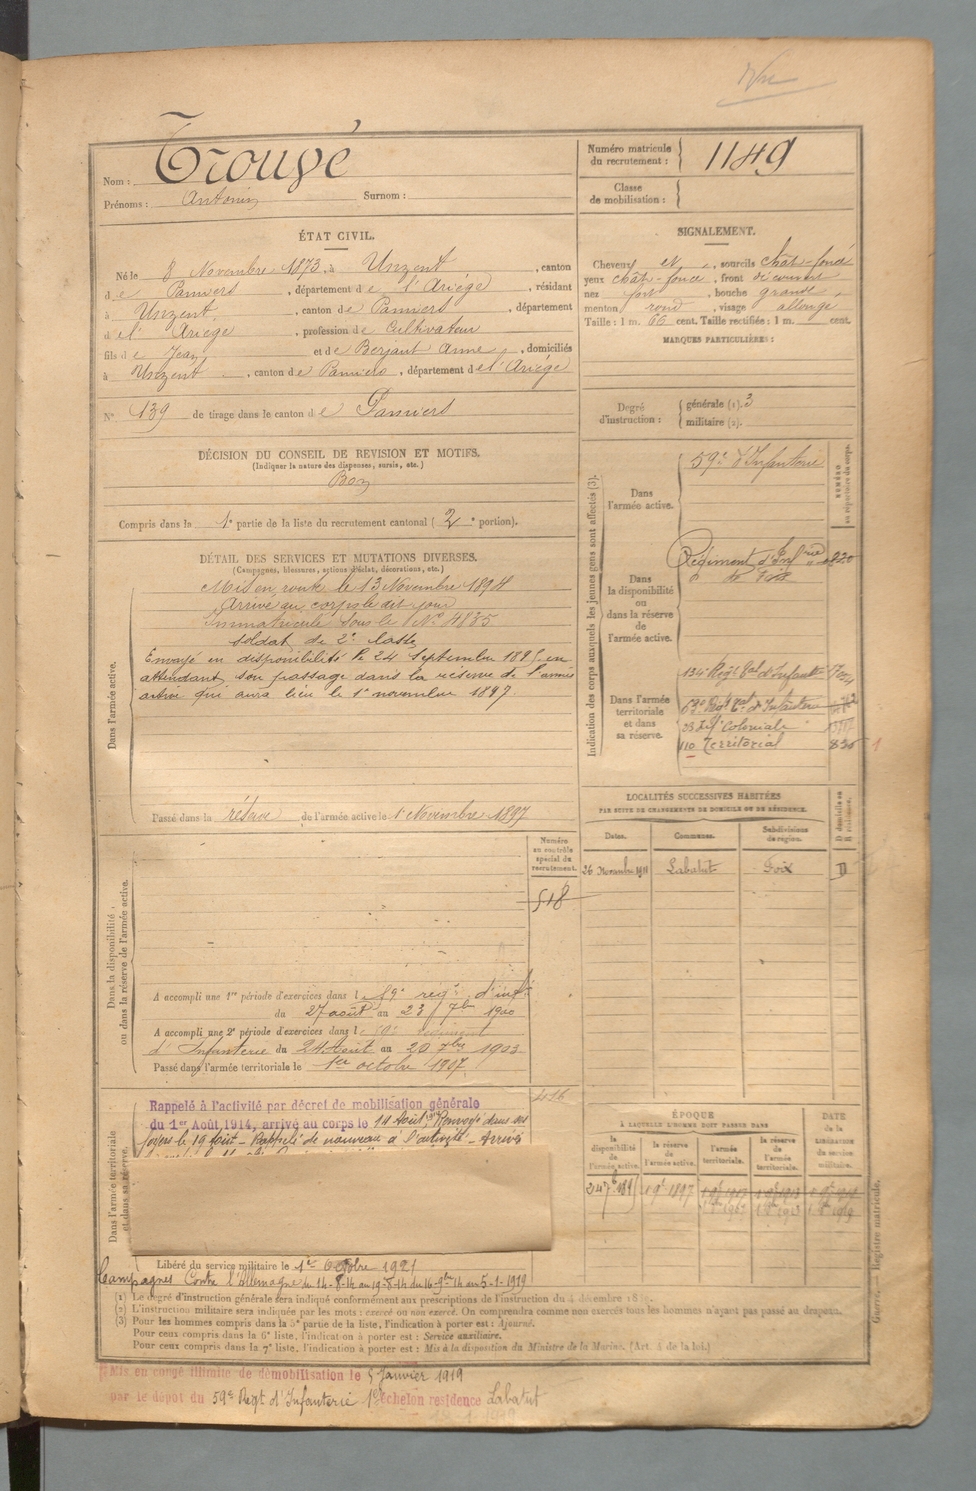 Vu
Nom : Trouvé
Prénoms : Antonin Surnom :
Numéro matricule du recrutement : 1149
Classe de mobilisation :
ÉTAT CIVIL.
Né le 8 Novembre 1873, à Unzent, canton
de Pamiers, département de l'Ariège, résidant
à Unzent, canton de Pamiers, département
de l'Ariège, profession de Cultivateur
fils de Jean et de Berjaut Anne, domiciliés
à Unzent, canton de Pamiers, département de l'Ariège
N° 139 de tirage dans le canton de Pamiers
DÉCISION DU CONSEIL DE REVISION ET MOTIFS.
(Indiquer la nature des dispenses, sursis, etc.)
Bon
Compris dans la 1e partie de la liste du recrutement cantonal (2e portion).
SIGNALEMENT.
Cheveux et, sourcils chât-foncé
yeux chât-foncé, front découvert
nez fort, bouche grande,
menton rond, visage allongé
Taille : 1 m. 66 cent. Taille rectifiée : 1 m. cent.
MARQUES PARTICULIÈRES :
Degré d'instruction : générale (1). 3
militaire (2).
DÉTAIL DES SERVICES ET MUTATIONS DIVERSES.
(Campagnes, blessures, actions d'éclat, décorations, etc.)
Dans l'armée active.
Mis en route le 13 Novembre 1894
Arrivé au corps le dit jour
Immatriculé sous le N° 4835
soldat de 2e classe
Envoyé en disponibilité le 24 Septembre 1895 en
attendant son passage dans la réserve de l'armée
active qui aura lieu le 1er novembre 1897.
Passé dans la réserve de l'armée active le 1er Novembre 1897
Indication des corps auxquels les jeunes gens sont affectés (3).
NUMÉRO au répertoire du corps.
Dans l'armée active.
59e d'Infanterie
Dans la disponibilité ou dans la réserve de l'armée active.
Régiment d'Infrie 820
Dans l'armée territoriale et dans sa réserve.
134e Régt tal d'Infanterie
Régt tal d'Infanterie
Inf Coloniale
110 Territorial
LOCALITÉS SUCCESSIVES HABITÉES
PAR SUITE DE CHANGEMENTS DE DOMICILE OU DE RÉSIDENCE.
Dates. Communes. Subdivisions de région. D domicile ou R résidence.
26 Novembre Labatut Foix D
Dans la disponibilité ou dans la réserve de l'armée active.
Numéro au contrôle spécial du recrutement.
518
A accompli une 1re période d'exercices dans le 59e régt d'inft
du 27 août au 23 7bre 1900
A accompli une 2e période d'exercices dans le régiment
d'Infanterie du 24 Août au 20 7bre 1903
Passé dans l'armée territoriale le 1er octobre 1907.
Dans l'armée territoriale et dans sa réserve.
Rappelé à l'activité par décret de mobilisation générale
du 1er Août 1914, arrivé au corps le 14 Août. Renvoyé dans ses
foyers le 19 Août - Rappelé de nouveau à l'activité - Arrivé
Libéré du service militaire le 1er Octobre 1921
Campagnes Contre l'Allemagne du 14-8-14 au 19-8-14 du 16-9bre 14 au 5-1-1919
ÉPOQUE
À LAQUELLE L'HOMME DOIT PASSER DANS
la disponibilité de l'armée active. la réserve de l'armée active. l'armée territoriale. la réserve de l'armée territoriale. DATE DE LA LIBÉRATION du service militaire.
(1) Le degré d'instruction générale sera indiqué conformément aux prescriptions de l'instruction du 4 décembre
(2) L'instruction militaire sera indiquée par les mots : exercé ou non exercé. On comprendra comme non exercés tous les hommes n'ayant pas passé au drapeau.
(3) Pour les hommes compris dans la 5e partie de la liste, l'indication à porter est : Ajourné.
Pour ceux compris dans la 6e liste, l'indication à porter est : Service auxiliaire.
Pour ceux compris dans la 7e liste, l'indication à porter est : Mis à la disposition du Ministre de la Marine. (Art. 4 de la loi.)
Guerre. — Registre matricule.
Mis en congé illimité de démobilisation le 5 Janvier 1919
par le dépôt du 59e Regt d'Infanterie 1er échelon résidence Labatut